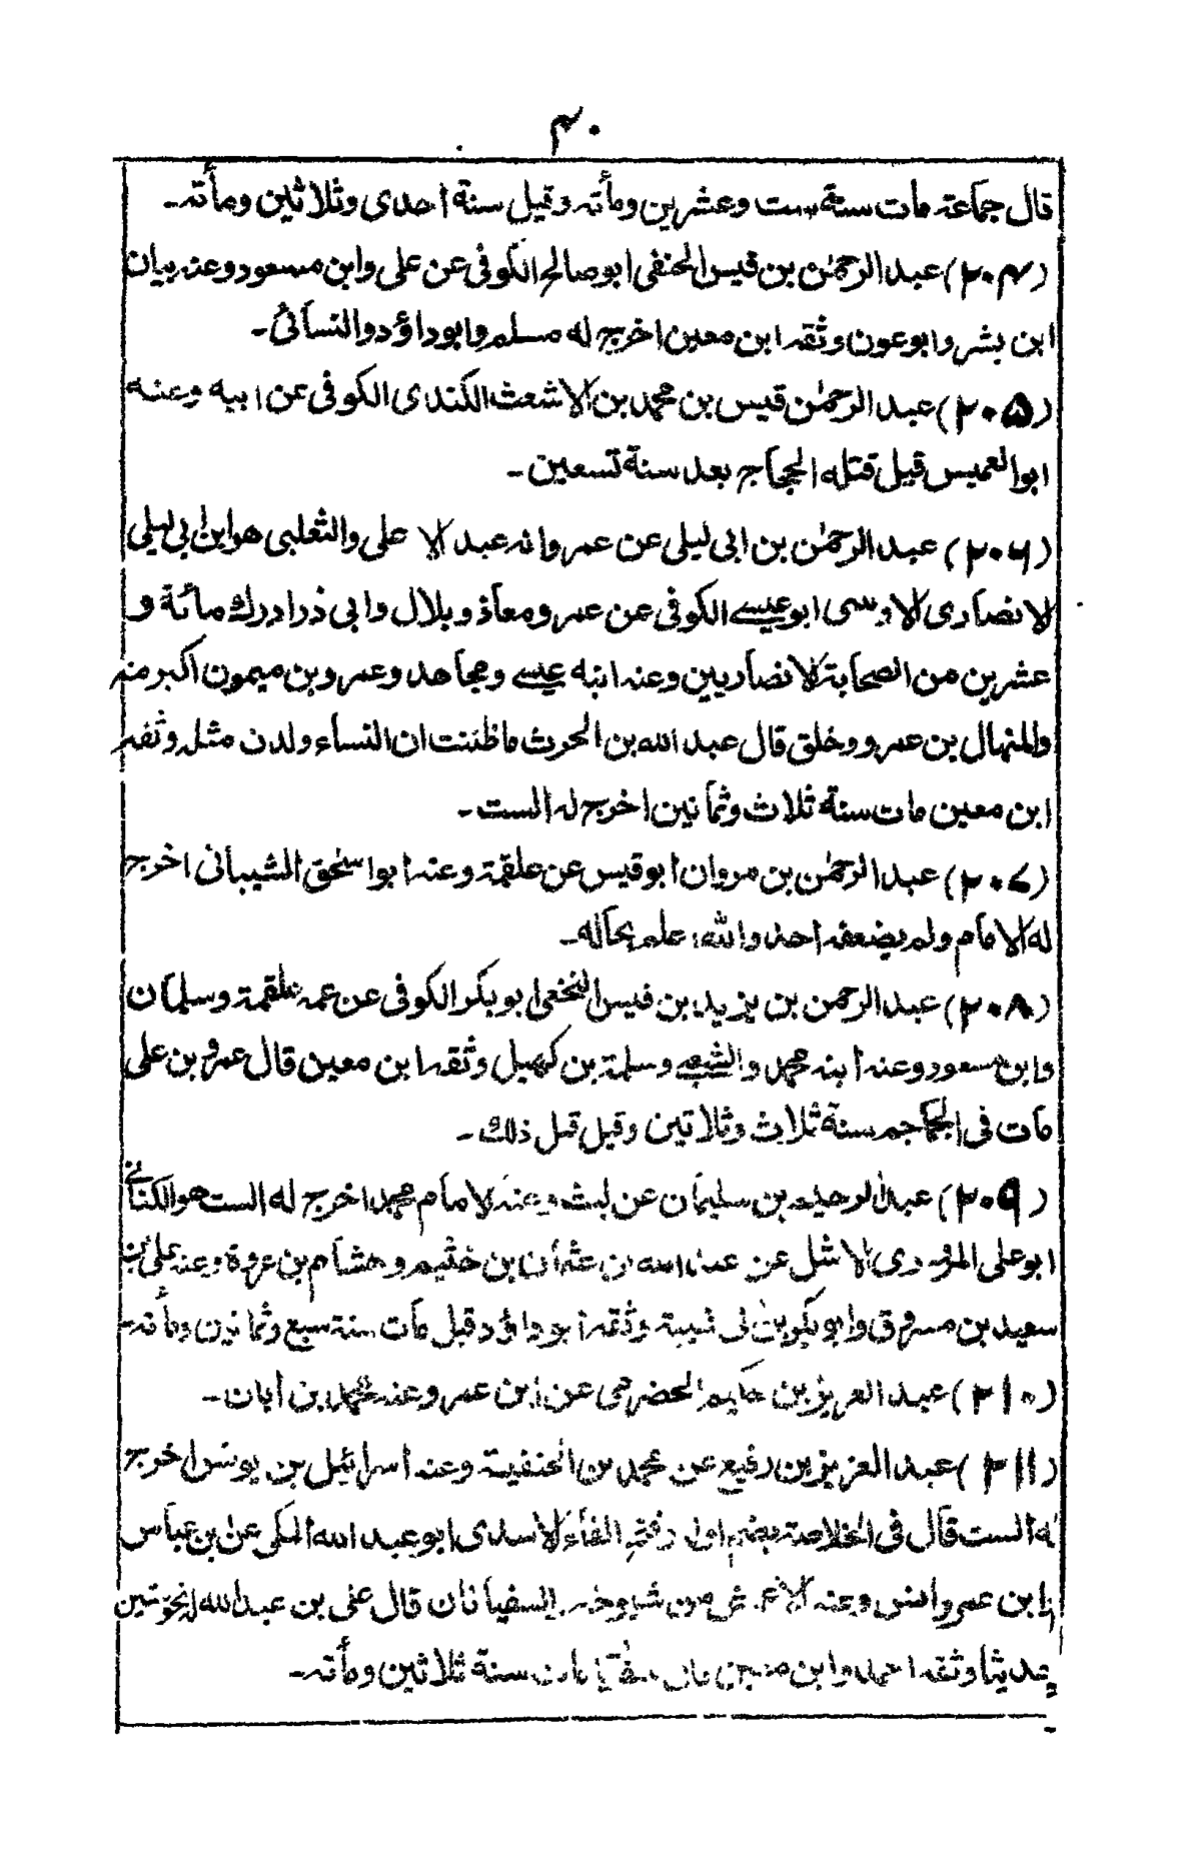 ۴۰
قال جماعة مات سنة ست وعشرين ومأته وقيل سنة احدى وثلاثين ومأته۔
(۲۰۴) عبد الرحمٰن بن قيس الحنفى ابو صالح الكوفى عن على وابن مسعود وعنه بيان
ابن بشر وابو عون وثقه ابن معين اخرج له مسلم وابو داؤد والنسائى۔
(۲۰۵) عبد الرحمٰن قيس بن محمد بن الاشعث الكندى الكوفى عن ابيه وعنه
ابو العميس قيل قتله الحجاج بعد سنة تسعين۔
(۲۰۶) عبد الرحمٰن بن ابى ليلى عن عمر وانه عبد الا على والثعلبى هو ابن ابى ليلى
لانصارى الاوسى ابو عيسے الكوفى عن عمر ومعاذ وبلال وابى ذر ادرك مائة و
عشرين من الصحابة لانصاريين وعنه ابنه عيسے ومجاهد وعمر وبن ميمون اكبر منه
والمنهال بن عمرو وخلق قال عبد الله بن الحرث ما ظننت ان النساء ولدن مثله وثقه
ابن معين مات سنة ثلاث وثمانين اخرج له الست۔
(۲۰۷) عبد الرحمٰن بن مروان ابو قيس عن علقمة وعنه ابو اسحٰق الشيبانى اخرج
له الامام ولم يضعفه احد والله اعلم بحاله۔
(۲۰۸) عبد الرحمن بن يزيد بن قيس النخعى ابو بكر الكوفى عن عمه علقمة وسلمان
وابن مسعود وعنه ابنه محمد والشعبے وسلمة بن كهيل وثقه ابن معين قال عمرو بن على
مات فى الجماجم سنة ثلاث وثلاثين وقيل قبل ذلك۔
(۲۰۹) عبد الرحيم بن سليمان عن ليث وعنه لامام محمد اخرج له الست هو الكنانے
ابو على المروزى الاشل عن عبد الله بن عثمان بن خثيم وهشام بن عروة وعنه على بن
سعيد بن مسروق وابو بكر بن ابى شيبة وثقه ابو داؤد قيل مات سنة سبع وثمانين ومأته۔
(۲۱۰) عبد العزيز بن حكيم الحضرمى عن ابن عمر وعنه محمد بن ابان۔
(۲۱۱) عبد العزيز بن رفيع عن محمد بن الحنفية وعنه اسرائيل بن يونس اخرج
له الست قال فى الخلاصة بضم اوله وفتح الفاء الاسدى ابو عبد الله المكى عن بن عباس
وابن عمر وانس وعنه الاعمش من شيوخه والسفيانان قال على بن عبد الله نحو ستين
حديثا وثقه احمد وابن معين مات سنة ثلاثين ومأته۔